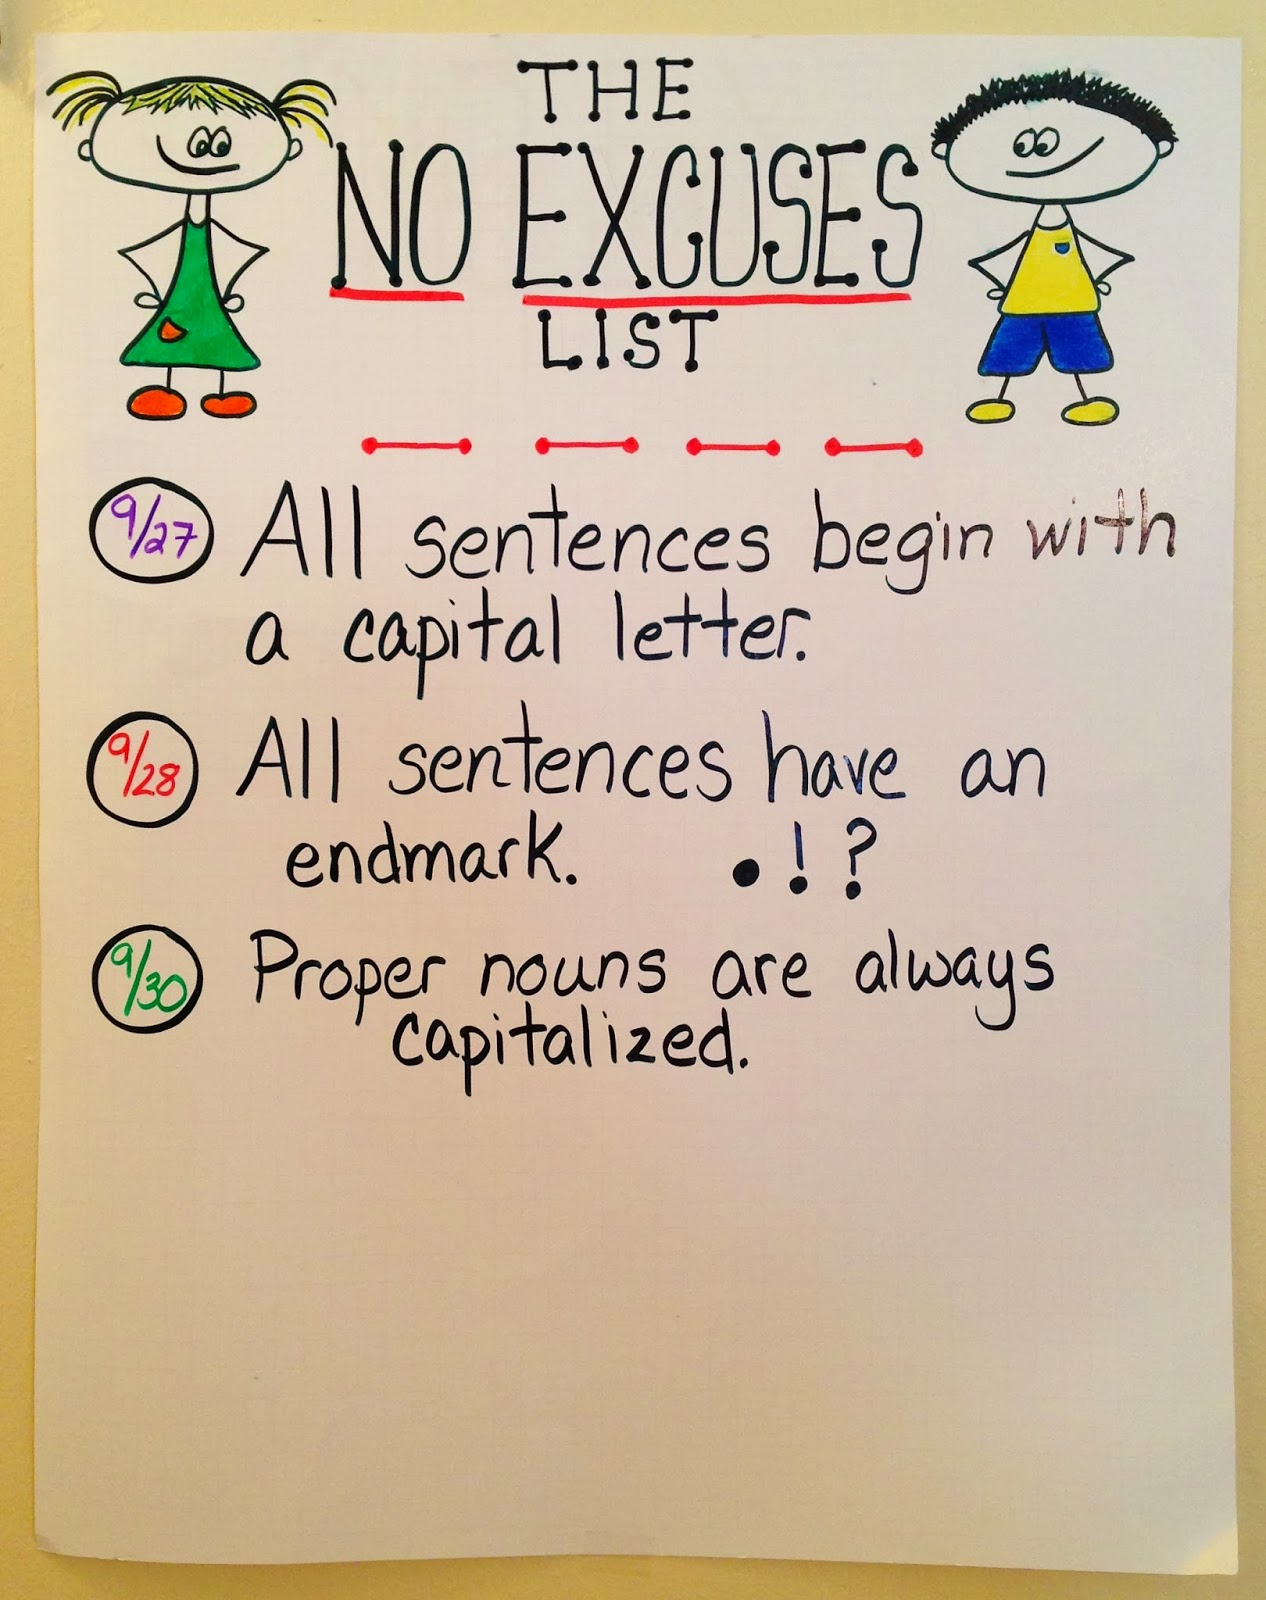 THE
NO EXCUSES
LIST
9/27 All sentences begin with
a capital letter.
9/28 All sentences have an
endmark. . ! ?
9/30 Proper nouns are always
capitalized.